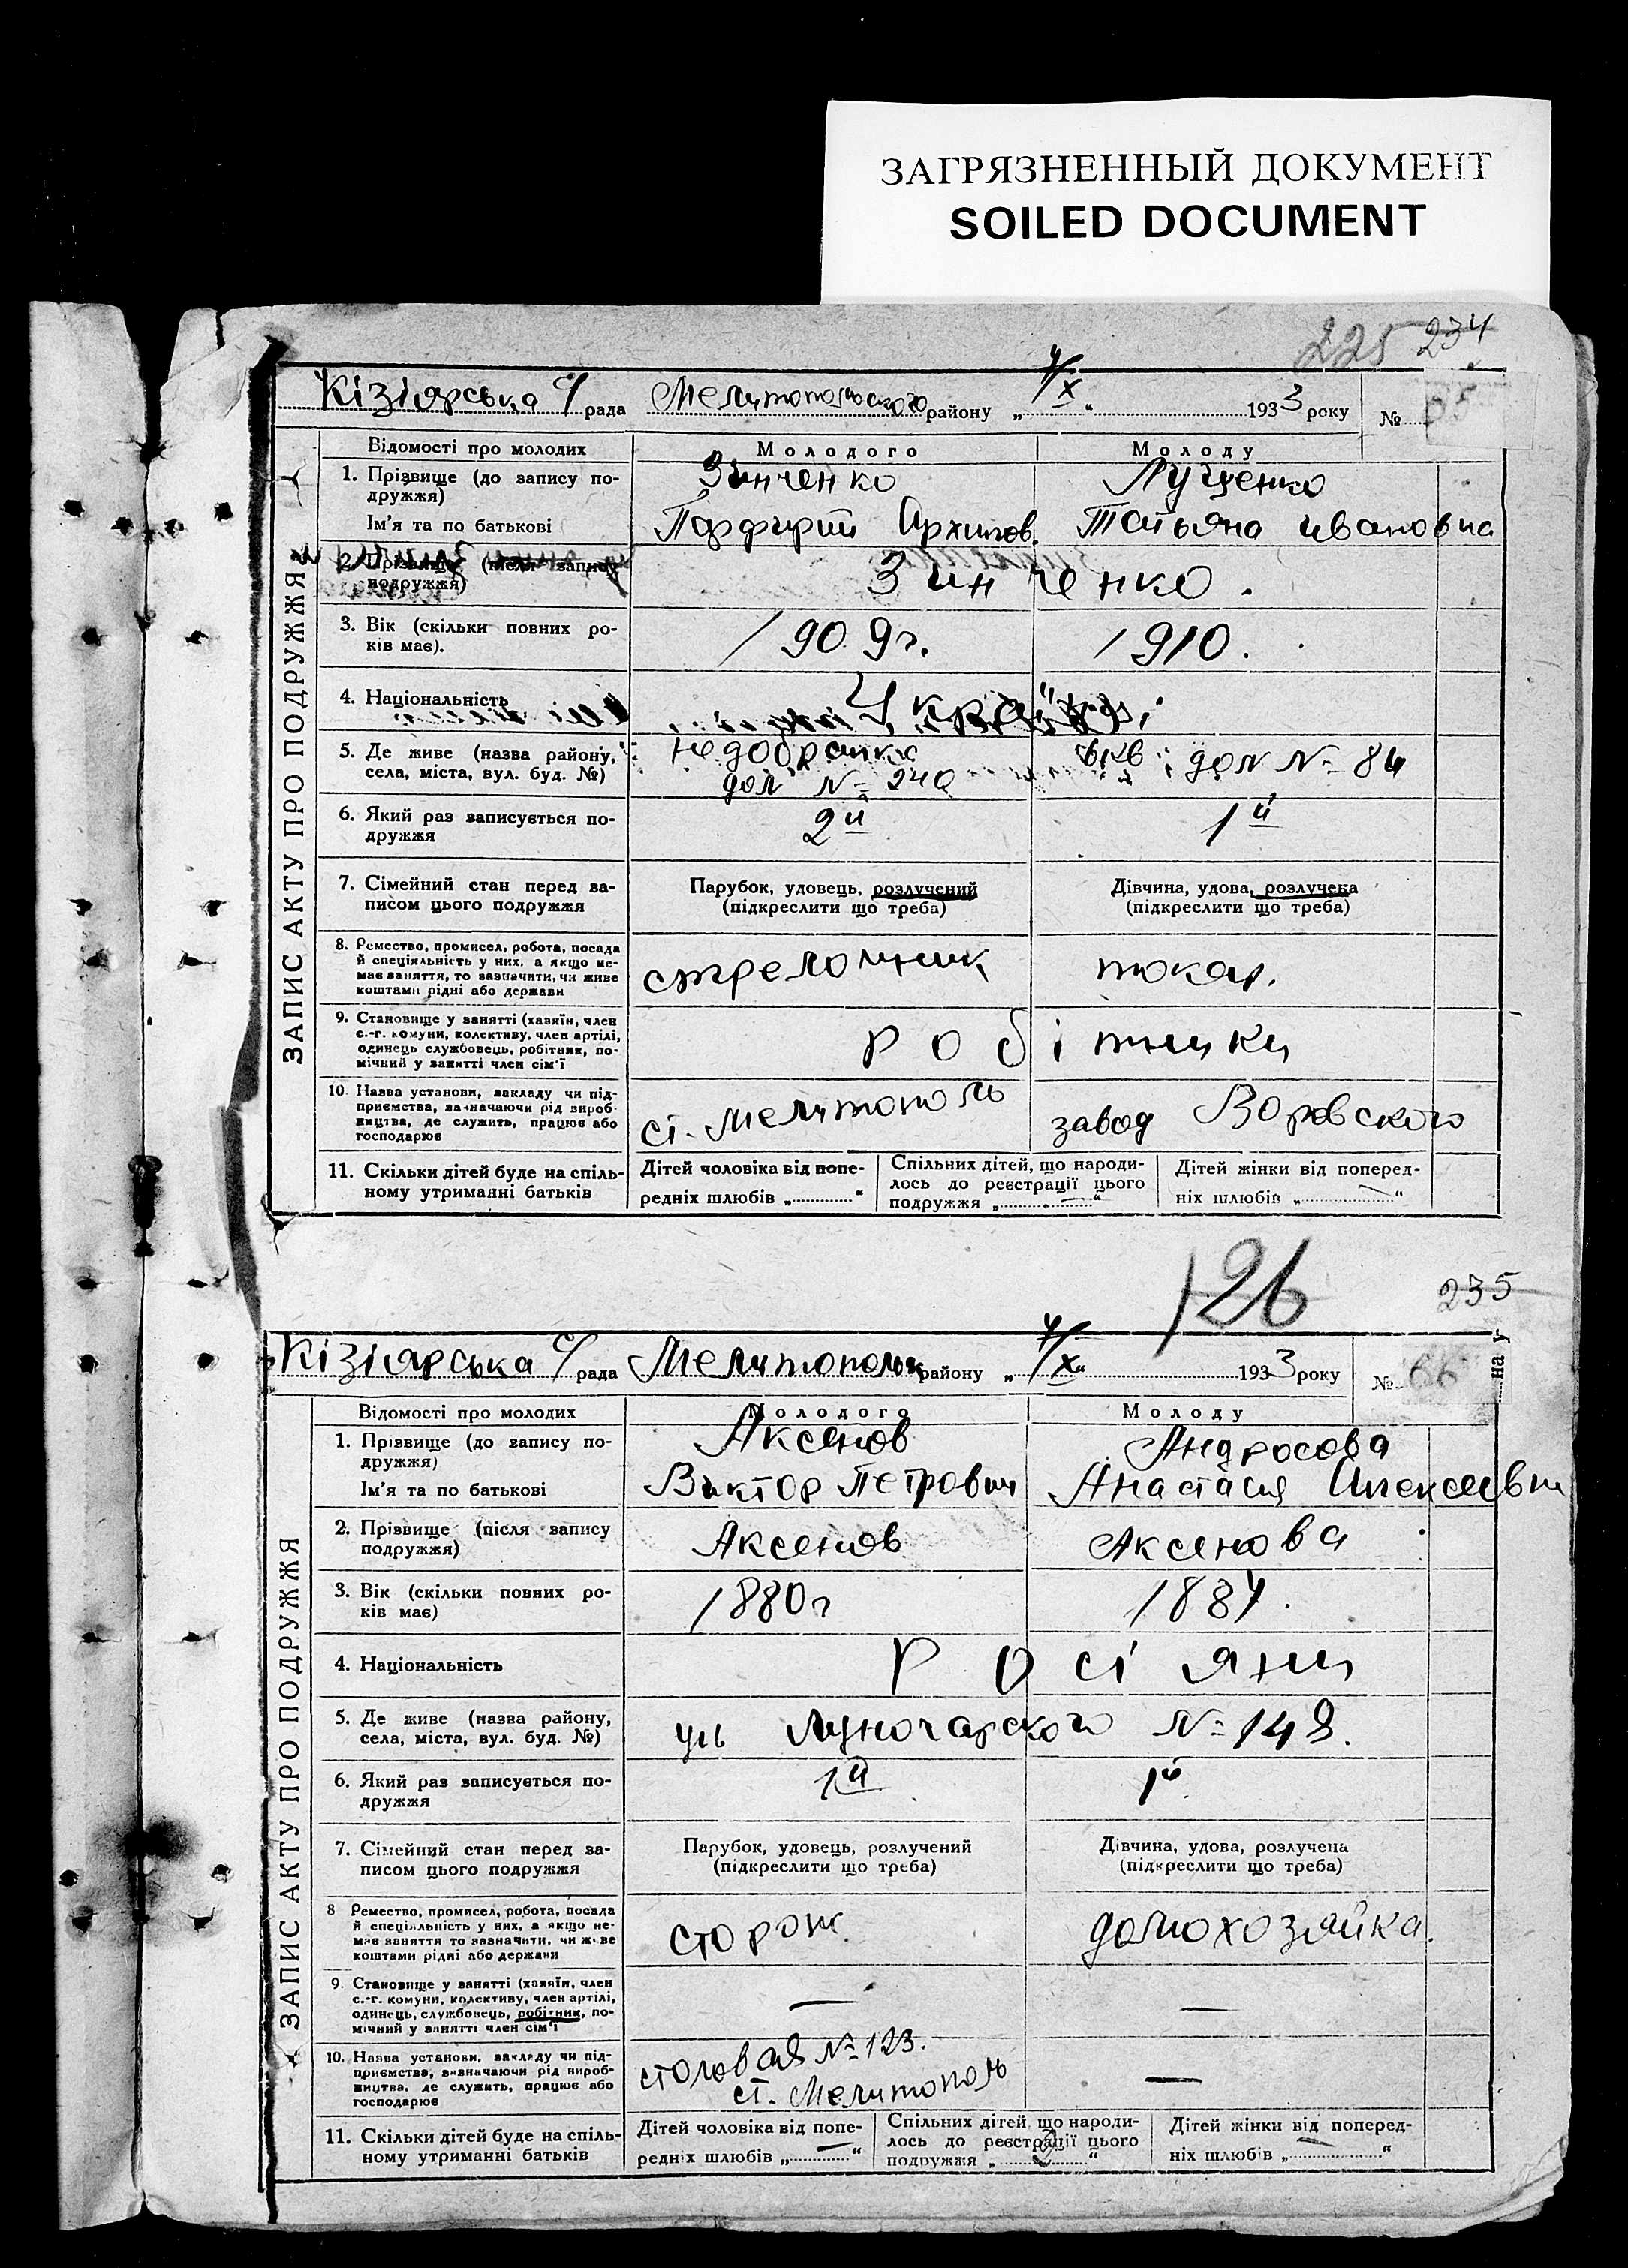 ЗАГРЯЗНЕННЫЙ ДОКУМЕНТ
SOILED DOCUMENT
225 234
Кізіярська с/рада Мелитопольского району „ 4/X “ 1933 року №
ЗАПИС АКТУ ПРО ПОДРУЖЖЯ
Відомості про молодих Молодого Молоду
1. Прізвище (до запису подружжя) Зинченко Луценко
Ім'я та по батькові Парфирий Архипов. Татьяна Ивановна
2. Прізвище (після запису подружжя) Зинченко.
3. Вік (скільки повних років має). 1909г. 1910.
4. Національність Українці
5. Де живе (назва району, села, міста, вул. буд. №) дом № 240 дом № 84
6. Який раз записується подружжя 2й 1й
7. Сімейний стан перед записом цього подружжя Парубок, удовець, розлучений (підкреслити що треба) Дівчина, удова, розлучена (підкреслити що треба)
8. Ремество, промисел, робота, посада й спеціяльність у них, а якщо немає заняття, то зазначити, чи живе коштами рідні або держави стрелочник токар.
9. Становище у занятті (хазяїн, член с.-г. комуни, колективу, член артілі, одинець службовець, робітник, помічний у занятті член сім'ї робітники
10. Назва установи, закладу чи підприємства, зазначаючи рід виробництва, де служить, працює або господарює ст. Мелитополь завод Воровского
11. Скільки дітей буде на спільному утриманні батьків Дітей чоловіка від попередніх шлюбів „ “ Спільних дітей, що народилось до реєстрації цього подружжя „—“ Дітей жінки від попередніх шлюбів „—“
126 235
Кізіярська с/рада Мелитопольск району „ 4/X “ 1933 року № 66
на у
ЗАПИС АКТУ ПРО ПОДРУЖЖЯ
Відомості про молодих Молодого Молоду
1. Прізвище (до запису подружжя) Аксенов Андросова
Ім'я та по батькові Виктор Петрович Анастасия Алексеевн
2. Прізвище (після запису подружжя) Аксенов Аксенова
3. Вік (скільки повних років має) 1880г 1887.
4. Національність Росіяни
5. Де живе (назва району, села, міста, вул. буд. №) ул Луночарского № 148.
6. Який раз записується подружжя 1й 1й
7. Сімейний стан перед записом цього подружжя Парубок, удовець, розлучений (підкреслити що треба) Дівчина, удова, розлучена (підкреслити що треба)
8 Ремество, промисел, робота, посада й спеціяльність у них, а якщо немає заняття то зазначити, чи живе коштами рідні або держави сторож. домохозяйка.
9. Становище у занятті (хазяїн, член с.-г. комуни, колективу, член артілі, одинець, службовець, робітник, помічний у занятті член сім'ї — —
10. Назва установи, закладу чи підприємства, зазначаючи рід виробництва, де служить, працює або господарює столовая № 123. ст. Мелитополь —
11. Скільки дітей буде на спільному утриманні батьків Дітей чоловіка від попередніх шлюбів „—“ Спільних дітей, що народилось до реєстрації цього подружжя „ 2 “ Дітей жінки від попередніх шлюбів „—“